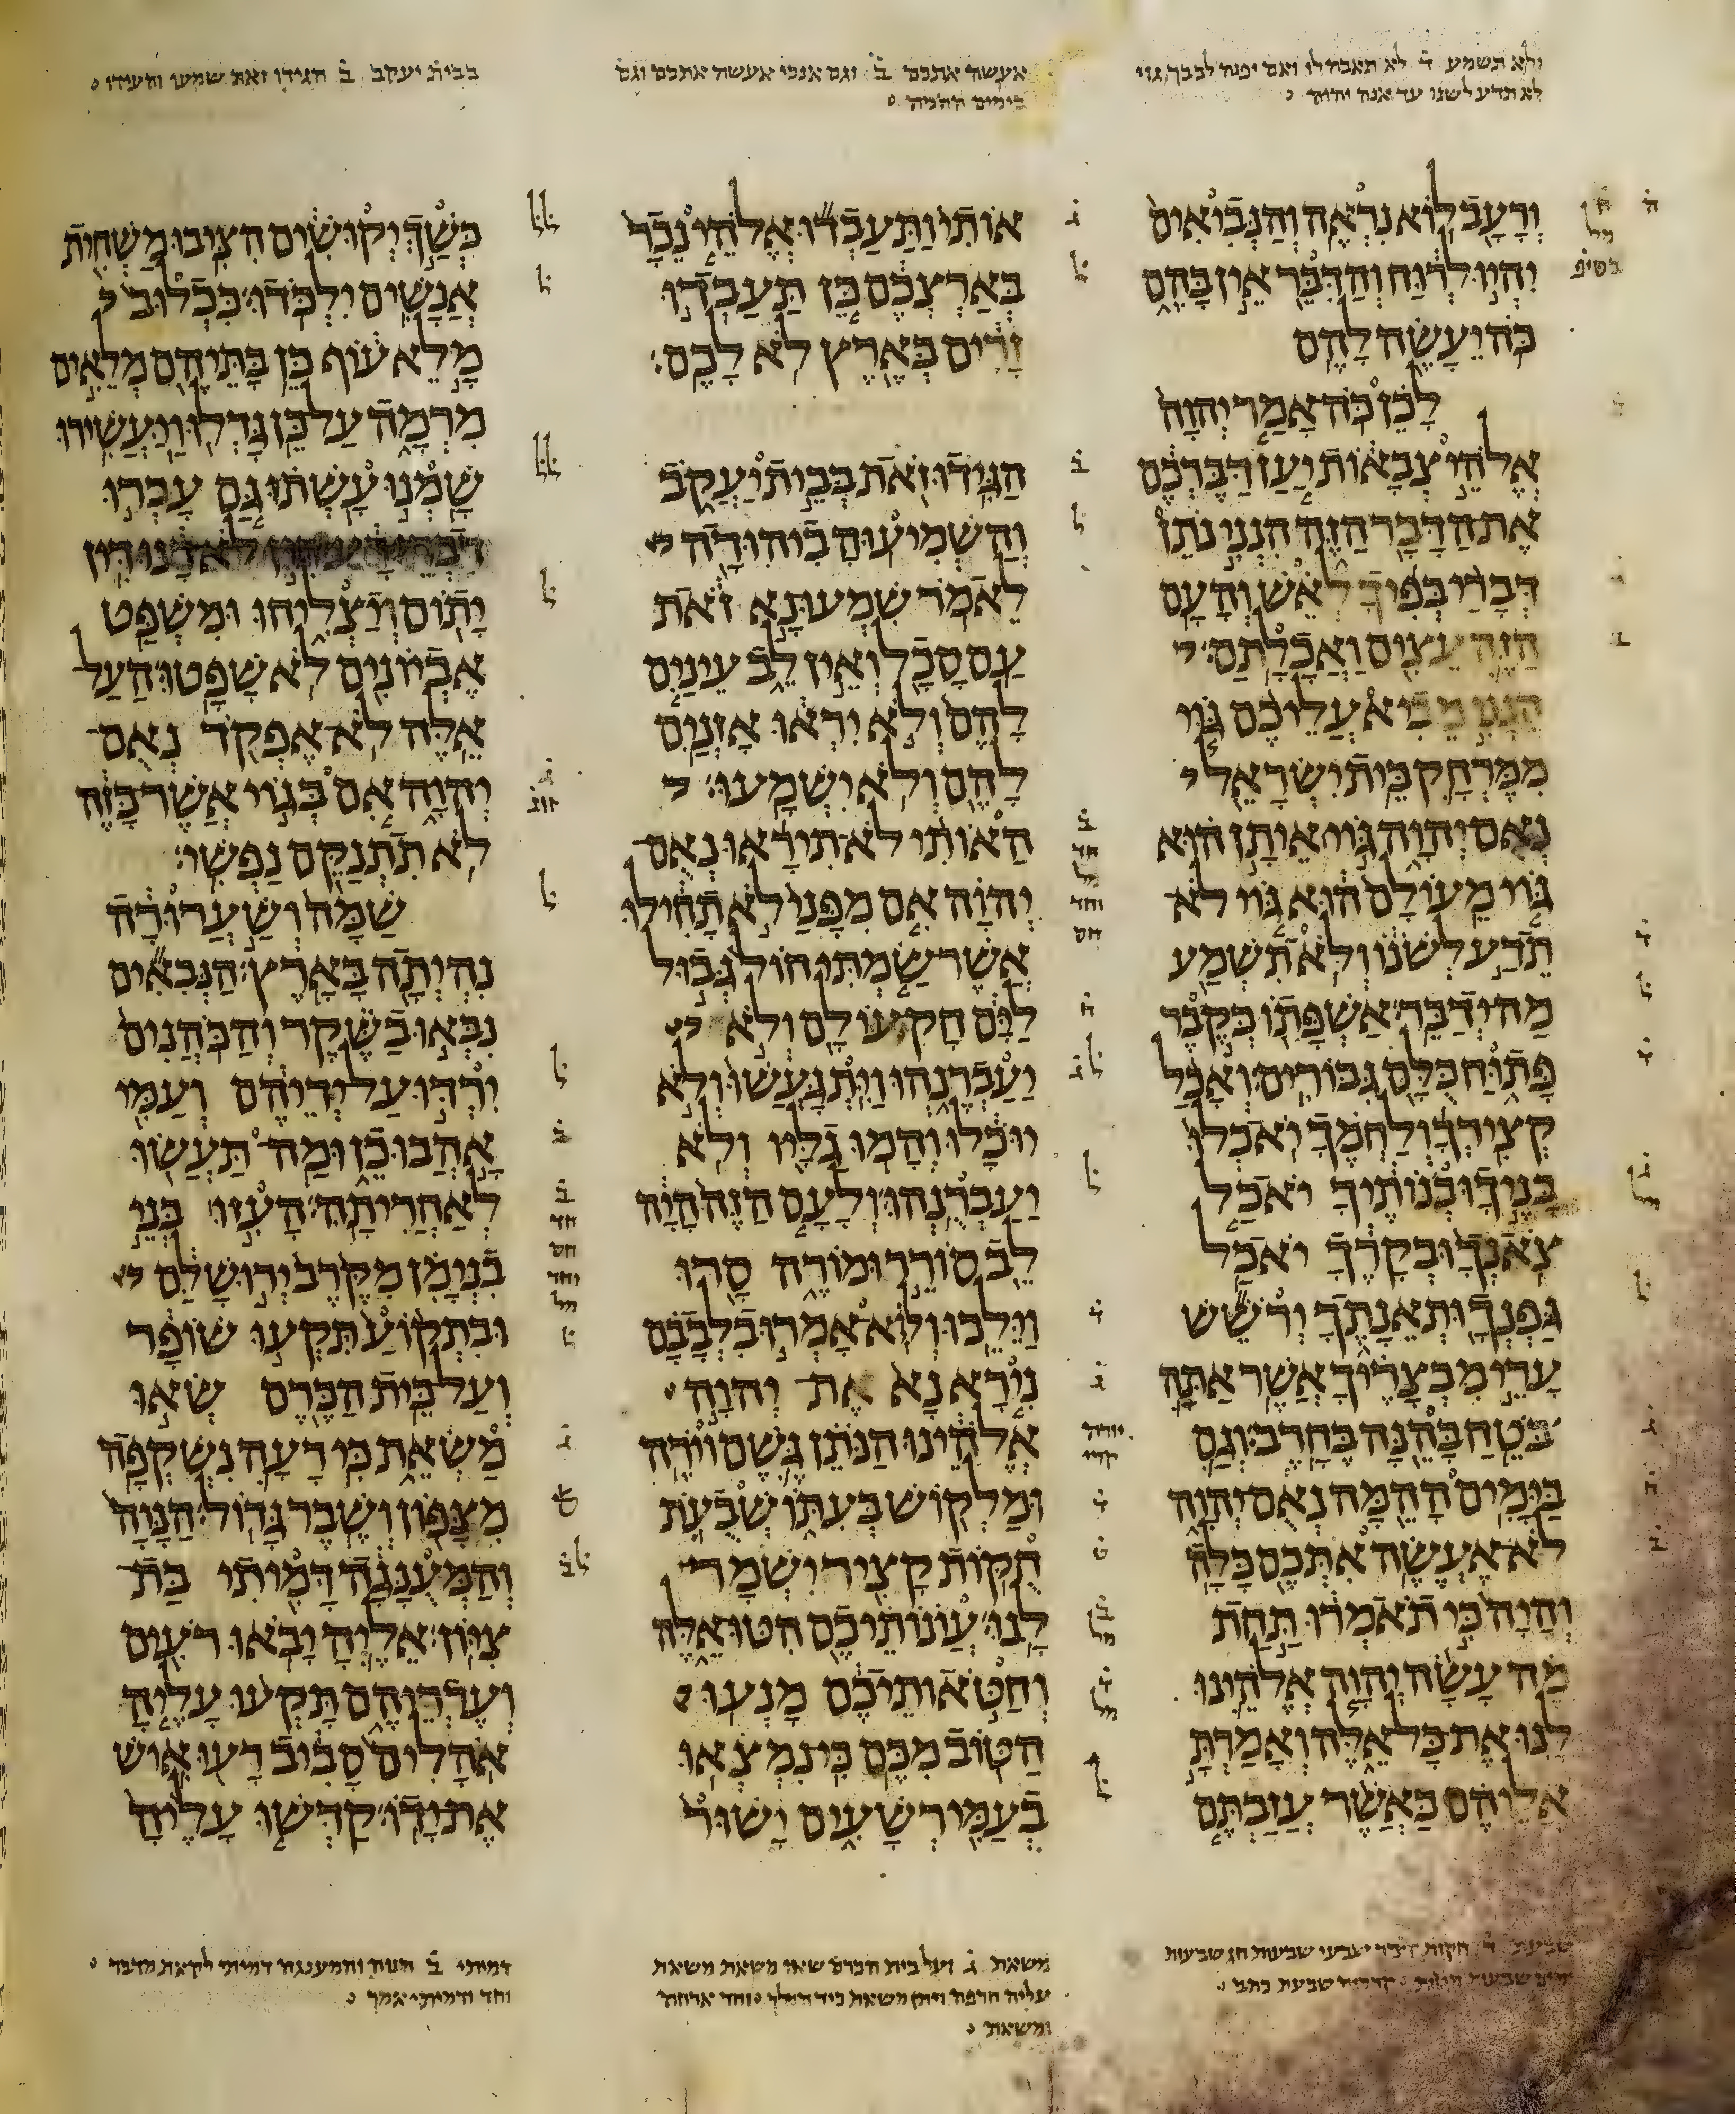 ולא תשמע ד לא תאבה לו ואם יפנה לבבך גוי
לא תדע לשנו עד אנה יהוה
אעשה אתכם ב וגם אנכי אעשה אתכם וגם
בימים ההמה
בבית יעקב ב הגידו זאת שמעו והעידו
ורעב לוא נראה והנביאים
יהיו לרוח והדבר אין בהם
כה יעשה להם
לכן כה אמר יהוה
אלהי צבאות יען דברכם
את הדבר הזה הנני נתן
דברי בפיך לאש והעם
הזה עצים ואכלתם
הנני מביא עליכם גוי
ממרחק בית ישראל
נאם יהוה גוי איתן הוא
גוי מעולם הוא גוי לא
תדע לשנו ולא תשמע
מה ידבר אשפתו כקבר
פתוח כלם גבורים ואכל
קצירך ולחמך יאכלו
בניך ובנותיך יאכל
צאנך ובקרך יאכל
גפנך ותאנתך ירשש
ערי מבצריך אשר אתה
בטח בהנה בחרב וגם
בימים ההמה נאם יהוה
לא אעשה אתכם כלה
והיה כי תאמרו תחת
מה עשה יהוה אלהינו
לנו את כל אלה ואמרת
אליהם כאשר עזבתם
אותי ותעבדו אלהי נכר
בארצכם כן תעבדו
זרים בארץ לא לכם
הגידו זאת בבית יעקב
והשמיעוה ביהודה
לאמר שמעו נא זאת
עם סכל ואין לב עינים
להם ולא יראו אזנים
להם ולא ישמעו
האותי לא תיראו נאם
יהוה אם מפני לא תחילו
אשר שמתי חול גבול
לים חק עולם ולא
יעברנהו ויתגעשו ולא
יוכלו והמו גליו ולא
יעברנהו ולעם הזה היה
לב סורר ומורה סרו
וילכו ולוא אמרו בלבבם
נירא נא את יהוה
אלהינו הנתן גשם וירה
ומלקוש בעתו שבעת
חקות קציר ישמר
לנו עונותיכם הטו אלה
וחטאותיכם מנעו
הטוב מכם כי נמצאו
בעמי רשעים ישור
כשך יקושים הציבו משחית
אנשים ילכדו ככלוב
מלא עוף כן בתיהם מלאים
מרמה על כן גדלו ויעשירו
שמנו עשתו גם עברו
דברי רע דין לא דנו דין
יתום ויצליחו ומשפט
אביונים לא שפטו העל
אלה לא אפקד נאם
יהוה אם בגוי אשר כזה
לא תתנקם נפשי
שמה ושערורה
נהיתה בארץ הנבאים
נבאו בשקר והכהנים
ירדו על ידיהם ועמי
אהבו כן ומה תעשו
לאחריתה העזו בני
בנימן מקרב ירושלם
ובתקוע תקעו שופר
ועל בית הכרם שאו
משאת כי רעה נשקפה
מצפון ושבר גדול הנוה
והמענגה דמיתי בת
ציון אליה יבאו רעים
ועדריהם תקעו עליה
אהלים סביב רעו איש
את ידו קדשו עליה
משאת ג ועל בית הכרם שאו משאת משאת
עליה חרפה ויתן משאת כיד המלך וחד ארוחה
ומשאת
דמיתי ב הנוה והמענגה דמיתי לקאת מדבר
וחד ודמיתי אמך